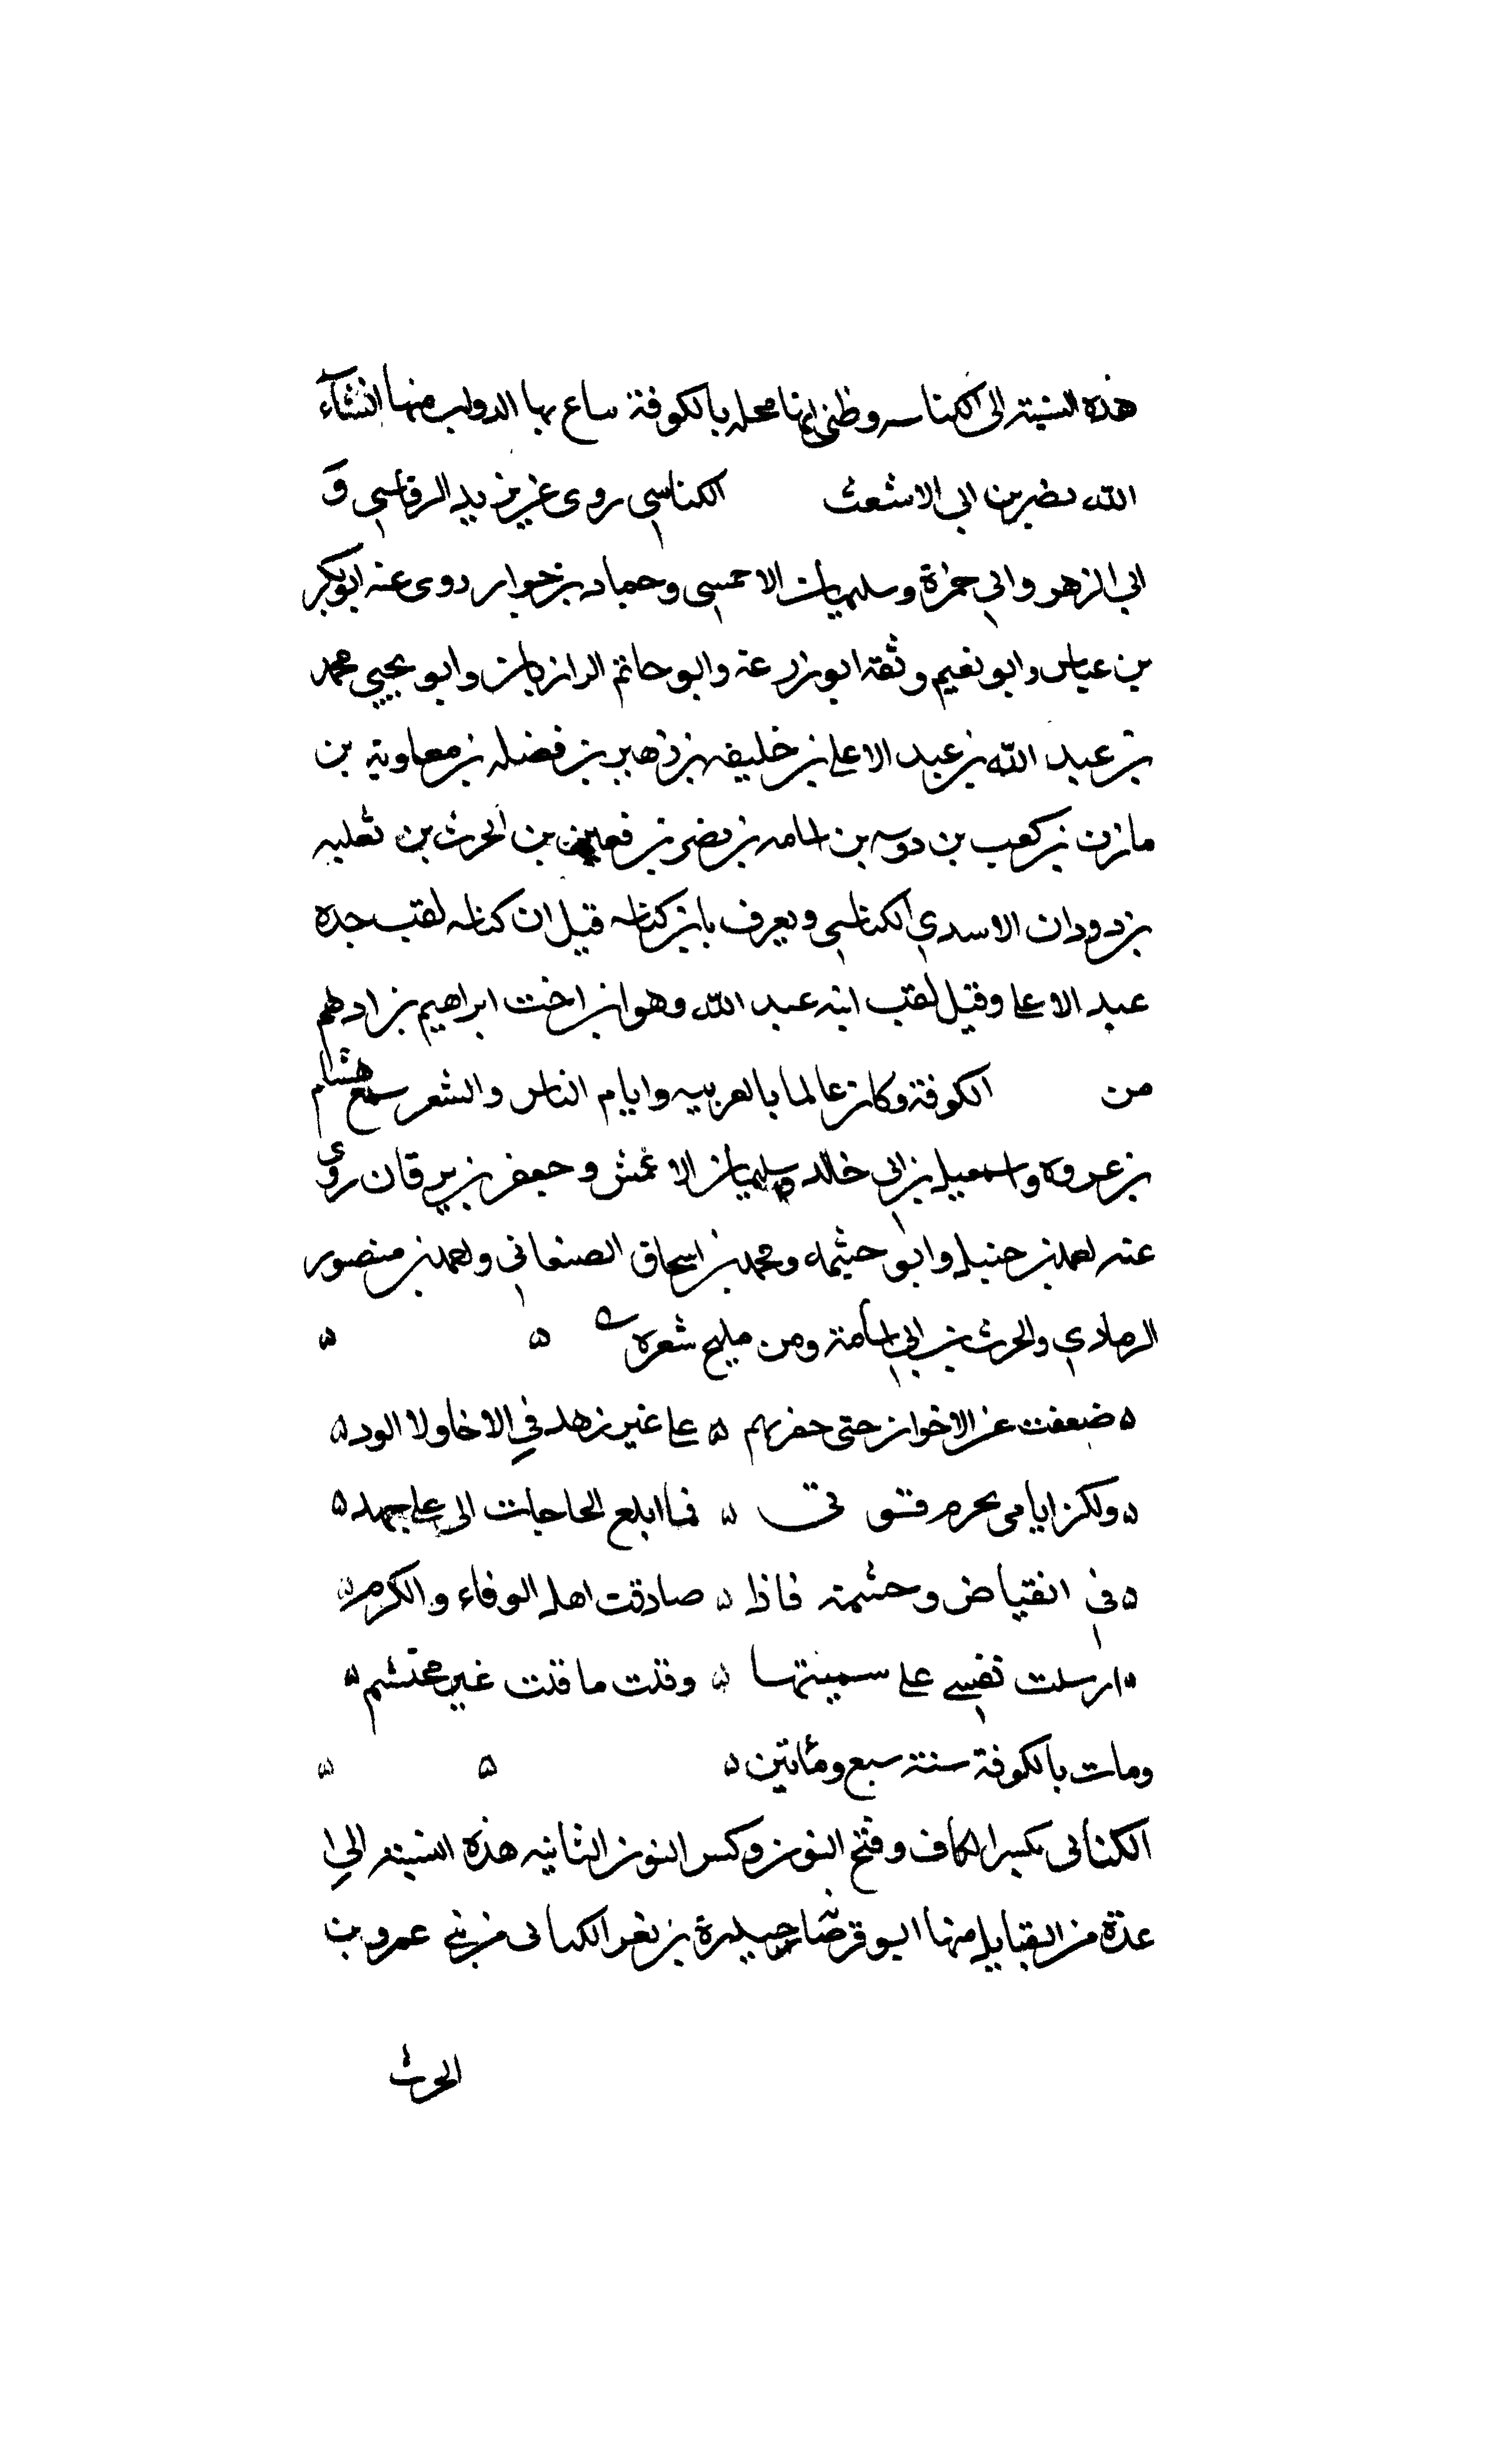 هذه النسبة الى الكناسه وظنى انها محله بالكوفة يباع بها الدواب منها انشآء
الله نضر بن ابى الاشعث الكناسي روى عن يزيد الرقاشي و
ابي الزهر وابي حمزة وسليمان الاحمسي وحماد بن خوار روى عنه ابو بكر
بن عياش وابو نعيم وثقه ابو زرعة وابو حاتم الرازيان وابو يحيي محمد
بن عبد الله بن عبد الاعلى بن خليفه بن زهير بن فضله بن معاوية بن
مازن بن كعب بن دويبه بن اسامه بن نصر بن قعين بن الحرث بن ثعلبه
بن دودان الاسدي الكناسي ويعرف بابن كناسه قيل ان كناسه لقب جده
عبد الاعلى وقيل لقب ابنه عبد الله وهو ابن اخت ابراهيم بن ادهم
من الكوفة وكان عالما بالعربيه وايام الناس والشعر سمع هشام
بن عروه واسمعيل بن ابي خالد وسليمان الاعمش وجعفر بن برقان روى
عنه احمد بن حنبل وابو خيثمه ومحمد بن اسحاق الصنعاني واحمد بن منصور
الرمادي والحرث بن ابي اسامة ومن مليح شعره
ضعفت عن الاخوان حتى جفوتهم ۵ على غير زهد في الاخا ولا الود ۵
۵ ولكن ايامى تخرمن ۵ فما ابلغ الحاجات الى على جهد ۵
۵ في انقباض وحشمة فاذا ۵ صادقت اهل الوفاء والكرم ۵
ارسلت نفسي على سجيتها ۵ وقلت ما قلت غير محتشم ۵
ومات بالكوفة سنة سبع ومأتين ۵ ۵ ۵
الكنانى بكسر الكاف وفتح النون وكسر النون الثانيه هذه النسبة الى
عدة من القبايل منها ابو قرصافة جيدرة بن الكنانى من بني عمرو بن
الحرث